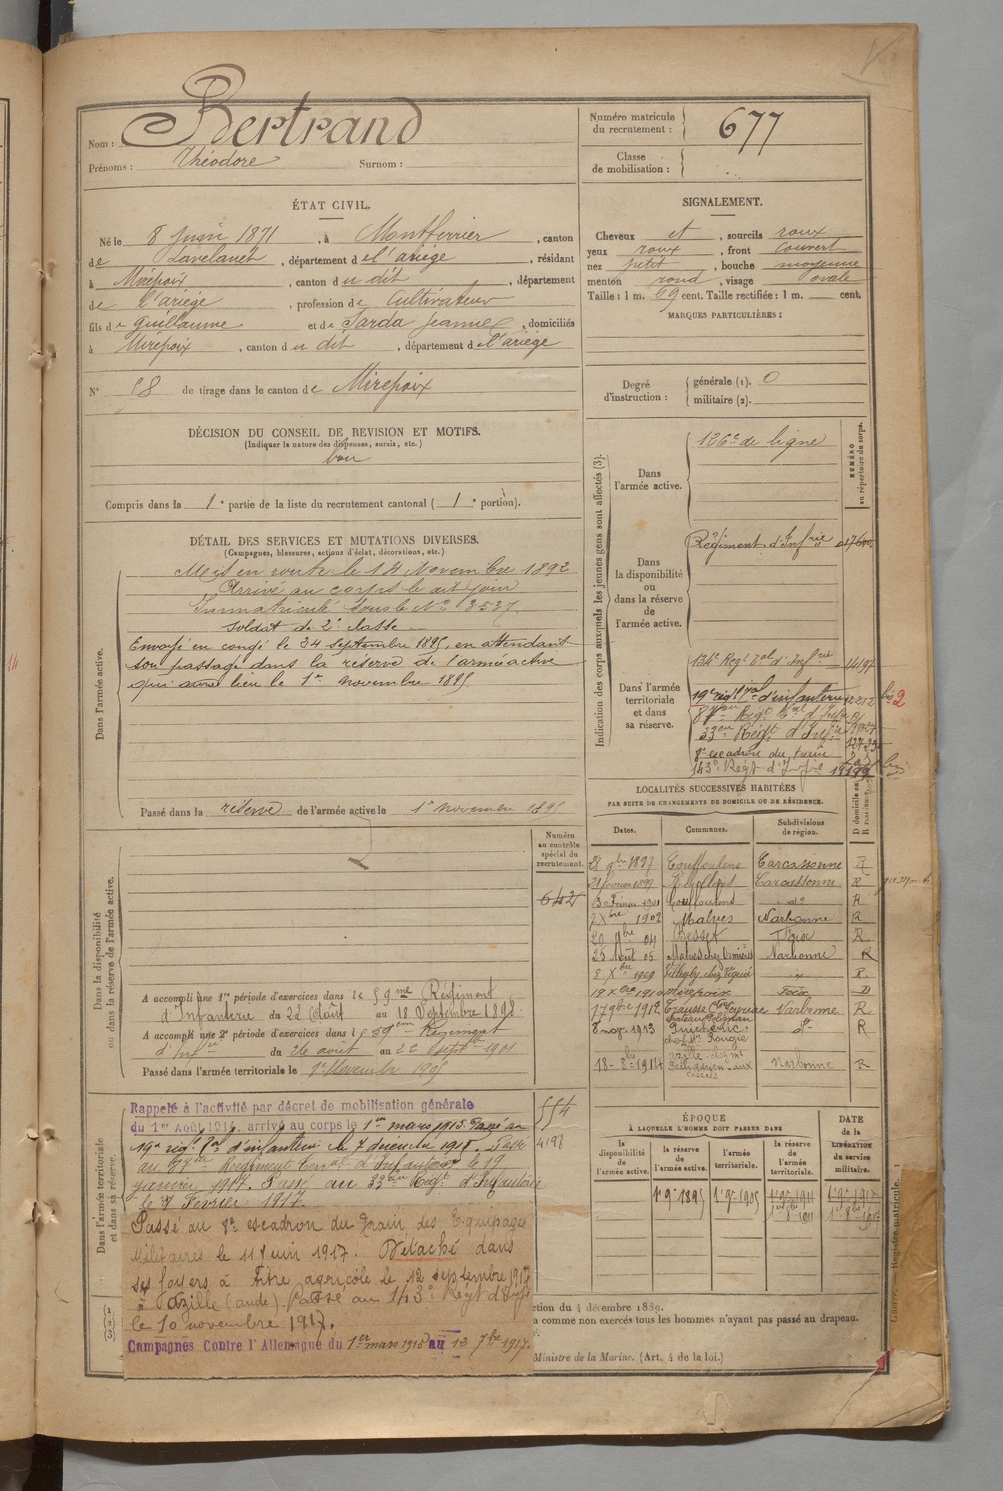 Nom : Bertrand
Prénoms : Théodore Surnom :
Numéro matricule du recrutement : 677
Classe de mobilisation :
ÉTAT CIVIL.
Né le 8 Juin 1871, à Montferrier, canton
de Lavelanet, département de l'ariège, résidant
à Mirepoix, canton du dit, département
de l'ariège, profession de Cultivateur
fils de Guillaume et de Sarda Jeanne, domiciliés
à Mirepoix, canton du dit, département de l'ariège
N° 58 de tirage dans le canton de Mirepoix
SIGNALEMENT.
Cheveux et, sourcils roux
yeux roux, front couvert
nez petit, bouche moyenne
menton rond, visage ovale
Taille : 1 m. 69 cent. Taille rectifiée : 1 m. cent.
MARQUES PARTICULIÈRES :
Degré d'instruction : générale (1). 0
militaire (2).
DÉCISION DU CONSEIL DE REVISION ET MOTIFS.
(Indiquer la nature des dispenses, sursis, etc.)
bon
Compris dans la 1e partie de la liste du recrutement cantonal (1e portion).
DÉTAIL DES SERVICES ET MUTATIONS DIVERSES.
(Campagnes, blessures, actions d'éclat, décorations, etc.)
Dans l'armée active.
Mis en route le 14 Novembre 1892
Arrivé au corps le dit jour
Immatriculé sous le N° 3537
Soldat de 2e classe
Envoyé en congé le 24 septembre 1895, en attendant
son passage dans la réserve de l'armée active
qui aura lieu le 1er novembre 1895
Passé dans la réserve de l'armée active le 1er novembre 1895
Indication des corps auxquels les jeunes gens sont affectés (3).
NUMÉRO au répertoire du corps.
Dans l'armée active.
126e de ligne
Dans la disponibilité ou dans la réserve de l'armée active.
Régiment d'Infrie
Dans l'armée territoriale et dans sa réserve.
134e Régt Tal d'Infrie 14197
19e régt Tal d'infanterie 12212 bis 2
33eme Régt d'Infie
8e escadron du train
143e Régt d'Infie
Dans la disponibilité ou dans la réserve de l'armée active.
Numéro au contrôle spécial du recrutement.
642
A accompli une 1re période d'exercices dans le 59me Régiment
d'Infanterie du 22 Août au 18 Septembre 1898
A accompli une 2e période d'exercices dans le 59eme Régiment
d'Infie du 26 août au 22 Septbre 1901
Passé dans l'armée territoriale le 1er Novembre 1905
LOCALITÉS SUCCESSIVES HABITÉES
PAR SUITE DE CHANGEMENTS DE DOMICILE OU DE RÉSIDENCE.
Dates. Communes. Subdivisions de région.
28 9bre 1897 Couffoulens Carcassonne R
21 février 1899 Carcassonne R
3 Février 1901 Couffoulens R
7 Xbre 1902 Malves Narbonne R
20 9bre 04 Besset Foix R
25 Août 05 Narbonne R
8 Xbre 1909 R
19 Xbre 1910 Mirepoix Foix D
17 9bre 1912 Narbonne R
8 nov. 1913 Puichéric do R
18-8bre 1914 Azille Narbonne R
Dans l'armée territoriale et dans sa réserve.
Rappelé à l'activité par décret de mobilisation générale
du 1er Août 1914, arrivé au corps le 1er mars 1915. Passé au
19e régt Tal d'infanterie le 7 Passé
au Régiment Terral d'Infanterie le 19
janvier 1917. Passé au 33eme Régt d'Infanterie
le 7 Février 1917.
Passé au 8e escadron du Train des Equipages
Militaires le 11 Juin 1917. Détaché dans
ses foyers à titre agricole le 12 septembre 1917
à Azille (aude). Passé au 143e Régt d'Infie
le 10 novembre 1917.
Campagnes Contre l'Allemagne du 1er mars 1915 au 12 7bre 1917.
554
ÉPOQUE
À LAQUELLE L'HOMME DOIT PASSER DANS
la disponibilité de l'armée active.
la réserve de l'armée active.
l'armée territoriale.
la réserve de l'armée territoriale.
DATE de la LIBÉRATION du service militaire.
1er 9bre 1895 1er 9bre 1905 1er 9bre 1911 1er 9bre 1917
ction du 4 décembre 1889.
a comme non exercés tous les hommes n'ayant pas passé au drapeau.
Ministre de la Marine. (Art. 4 de la loi.)
Guerre. — Registre matricule. 1